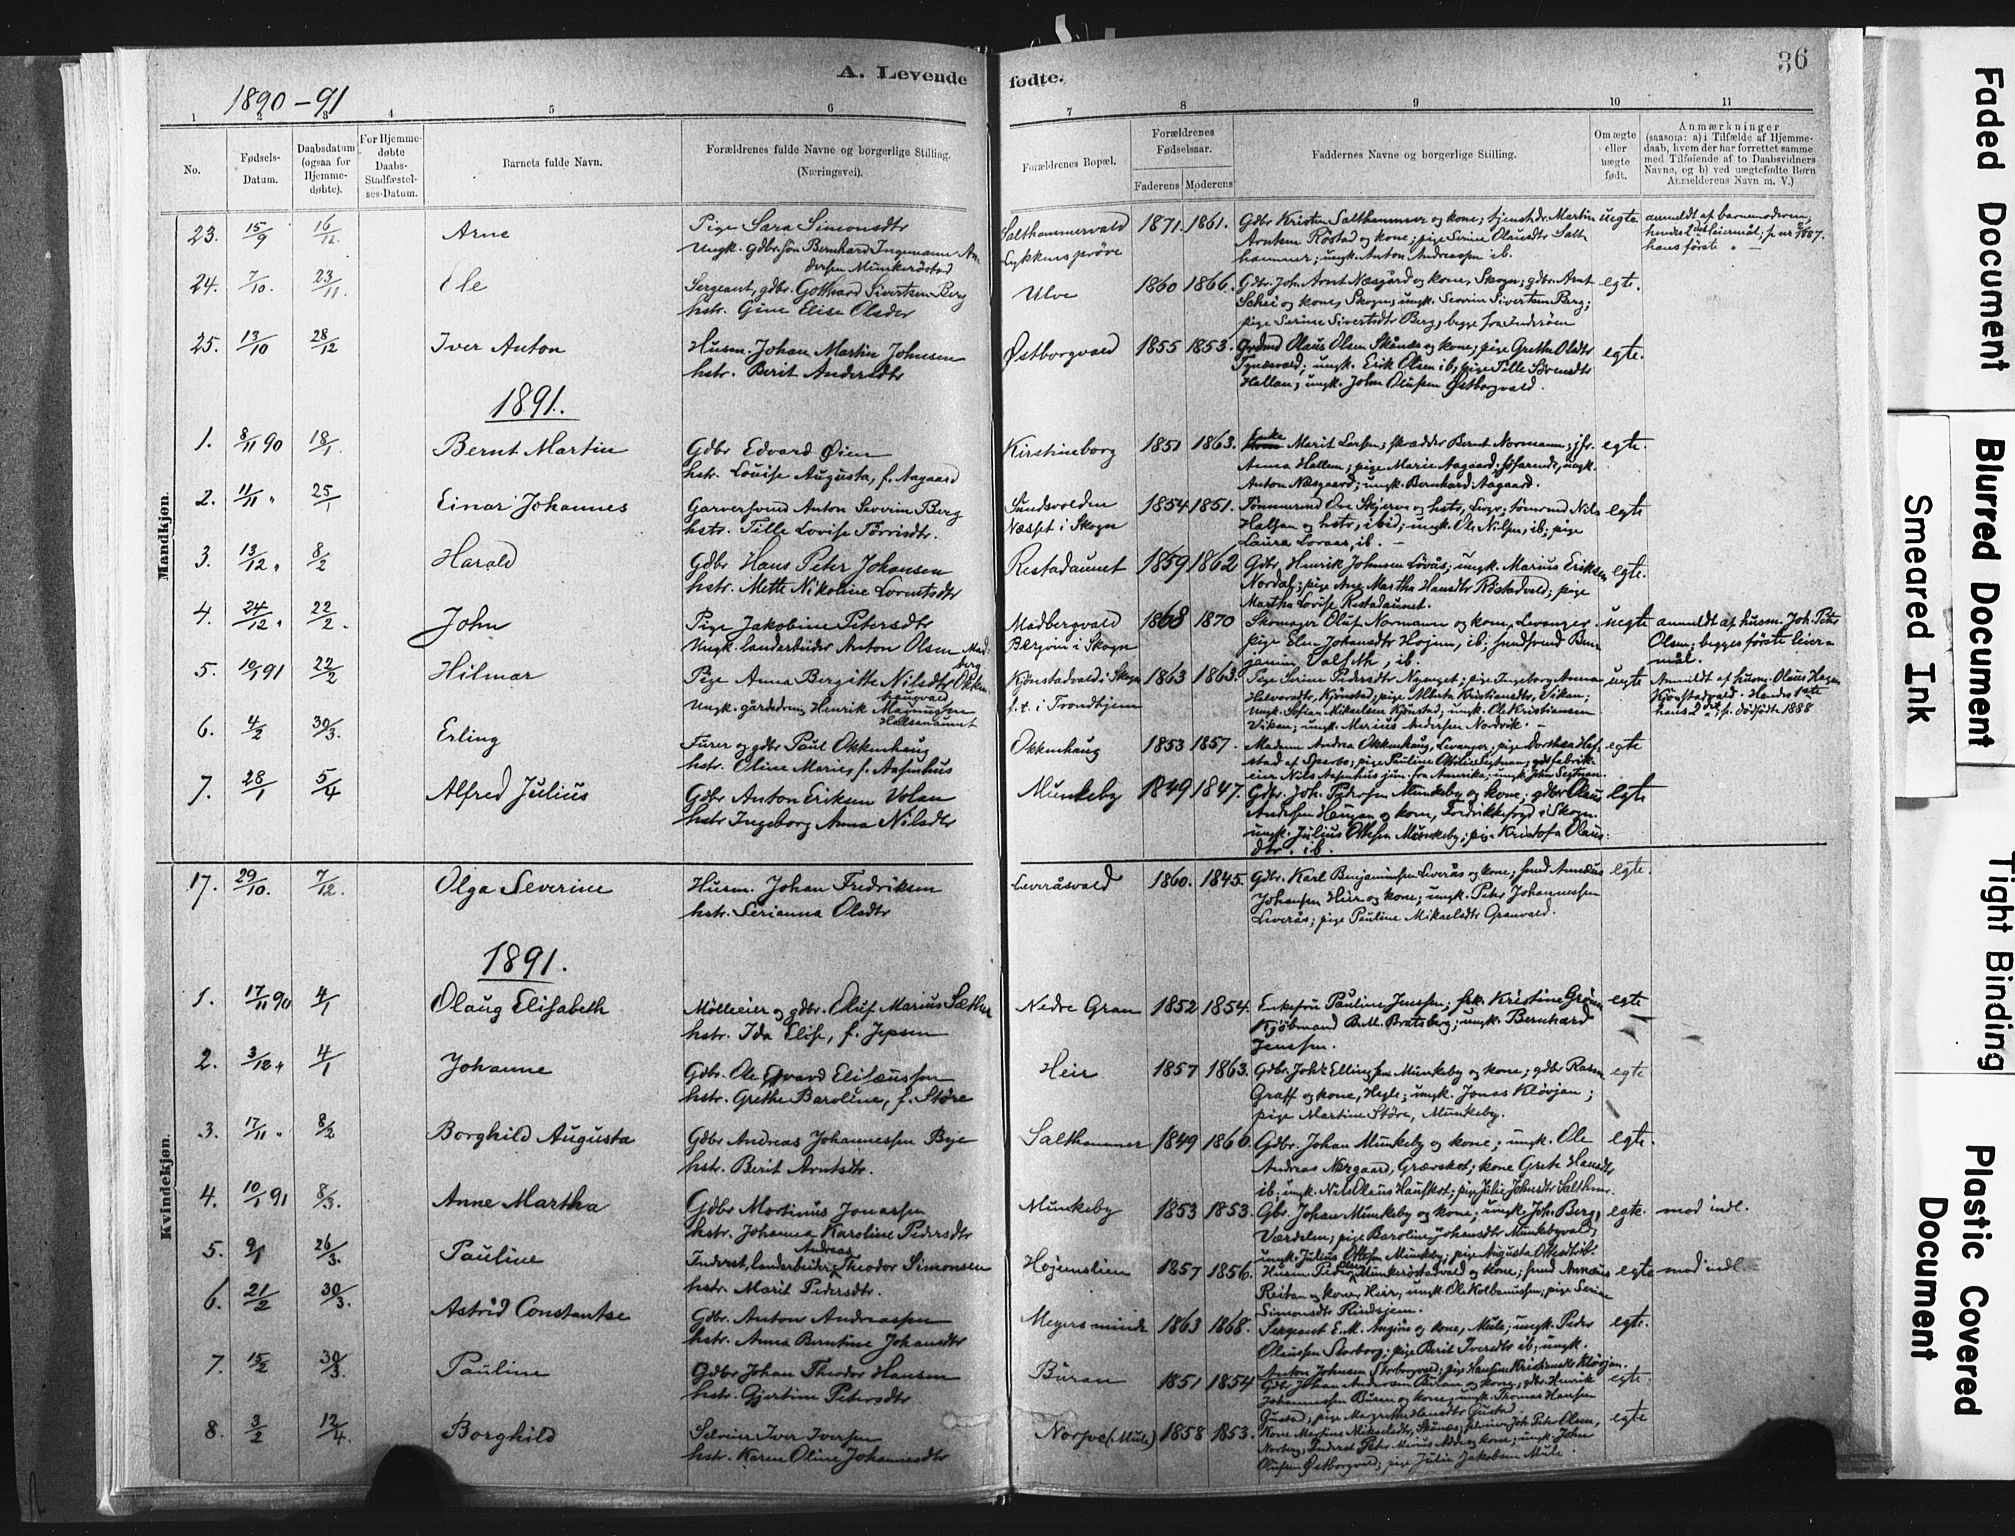 A. Levende fødte.
36
1890-91
1 2 3 4 5 6 7 8 9 10 11
No.
Fødsels-Datum.
Daabsdatum (ogsaa for Hjemme-døbte).
For Hjemme-døbte Daabs-Stadfæstel-ses-Datum.
Barnets fulde Navn.
Forældrenes fulde Navne og borgerlige Stilling.
(Næringsvei).
Forældrenes Bopæl.
Forældrenes Fødselsaar.
Faderens Moderens
Faddernes Navne og borgerlige Stilling.
Om ægte eller uægte født.
Anmærkninger
(saasom: a) i Tilfælde af Hjemme-
daab, hvem der har forrettet samme
med Tilføiende af to Daabsvidners
Navne, og b) ved uægtefødte Børn
Anmelderens Navn m. V.)
Mandkjøn.
23. 15/9 16/11 Arne Pige Sara Simonsdtr Salthammervald 1871. 1861. Gdbr Kristen Salthammer og kone; tjenstdr. Martin uegte anmeldt af barnemoderen,
Ungk. gdbr.søn Bernhard Ingemann Andersen Munkerøstad Lykkensprøve Arntsen Røstad og kone; pige Serine Olausdtr Salthammer; ungk. Anton Andreassen ib.
24. 7/10. 23/11. Ole Sergeant, gdbr. Gotthard Sivertsen Berg Ulve 1860 1866. Gdbr. Joh. Arnt Næsgård og kone, Skogn; gdbr. Arnt egte.
hstr. Gine Elise Olsdtr Schei og kone, Skogn; ungk. Severin Sivertsen Berg;
pige Serine Sivertsdtr Berg, begge fra Inderøen
25. 13/10 28/12 Iver Anton Husm. Johan Martin Johnsen Østborgvald 1855 1853. Olaus Olsen Skånes og kone; pige Grethe Olsdtr egte.
hstr. Berit Andersdtr Tynesvald; ungk. Erik Olsen ib, pige Tille Sørensdtr
Hallan; ungk. John Olufsen Østborgvald.
1891.
1. 8/11 90 18/1 Bernt Martin Gdbr Edvard Øien Kirstineborg 1851 1863. Enke Marit Larsen; skrædder Bernt Normann; jfr. egte.
hstr. Louise Augusta, f. Aagaard Anna Hallem; pige Marie Aagaard; søfarende, ungk.
Anton Næsgaard; ungk. Bernhard Aagaard.
2. 11/11 " 25/1 Einar Johannes Garversvend Anton Severin Berg Sundsvolden 1854 1851. Tømmermd Ove Skjerve og hstr, Levgr; tømrmd Nils egte
hstr. Tille Lovise Tørrisdtr. Næsset i Skogn Halsan og hstr, ibid; ungk. Ole Nilsen, ib; pige
Laura Loraas, ib. –
3. 13/12 " 8/2 Harald Gdbr Hans Peter Johansen Restadaunet 1859 1862 Gdbr. Henrik Johnsen Løvås; ungk. Marius Eriksen egte.
hstr. Mette Nikoline Lorentsdtr Nordal; pige Ane Martha Hansdtr Røstadvald; pige
Martha Lovise Restadaunet.
4. 24/12 " 22/2. John Pige Jakobine Petersdtr Madbergvald 1868 1870 Skomager Oluf Normann og kone, Levanger. uegte anmeldt af husm. Joh. Peter
Ungk. landarbeider Anton Olsen Madberg i Skogn pige Elen Johansdtr Hojem, ib; Olsen; begges første leiermål.
5. 10/1 91 22/2 Hilmar Pige Anna Bergitte Nilsdtr Kjønstadvald i Skogn 1863 1863. Pige Serine Pedersdtr Nynget; pige Ingeborg Anna uegte Anmeldt af husm. Olaus Hagen
Ungk. gårdsdreng Henrik Magnussen Halsenaunet f.t. i Trondhjem Halvorsdtr, Kjønstad; pige Alberta Kristiansdtr, Viken; Kjønstadvald. Hendes 1ste
Ungk. Sefan Mikaelsen Kjønstad, ungk. Ole Kristiansen hans 2det; f. dødfødte 1888
Viken; ungk. Marius Andersen Nordvik. –
6. 4/2 30/3. Erling Furer og gdbr Paul Okkenhaug Okkenhaug 1853 1857. Madam Andrea Okkenhaug, Levanger; pige Dorthea Hofstad af Sparbo; pige Pauline Ottilie Segtnan; egte
hstr. Oline Marie, f. Aasenhus eier Nils Aasenhus jun. fra Amerika; ungk. John Segtnan.
7. 28/1 5/4 Alfred Julius Gdbr Anton Eriksen Volan Munkeby 1849 1847. Gdbr. Joh. Pedersen Munkeby og kone; gdbr Olaus egte
hstr Ingeborg Anna Nilsdtr Andersen Haugan og kone, Fredrikkefryd i Skogn.
ungk. Julius Ottesen Munkeby; pige Kristofa Olausdtr. ib.
Kvindekjøn.
17. 29/10. 7/12. Olga Severine Husm. Johan Fredriksen Leveråsvald 1860. 1845. Gdbr. Karl Benjaminsen Leverås og kone; smd Annæus egte.
hstr. Serianna Olsdtr Johansen Heir og kone; ungk. Peter Johannessen
Leverås; pige Pauline Mikaelsdtr Granvald.
1891.
1. 17/11 90 4/1 Olaug Elisabeth Mølleeier og gdbr. Oluf Marius Sæther Nedre Gran 1852 1854. Enkefru Pauline Jenssen; frk. Kristine Grønn egte
hstr. Ida Elise, f. Jepsen Kjøbmand B.M. Bratsberg; ungk. Bernhard
Jenssen.
2. 3/12 " 4/1 Johanne Gdbr. Ole Edvard Elisæussen Heir 1857 1863. Gdbr. Johs Ellingsen Munkeby og kone; gdbr Rasm egte
hstr. Grethe Baroline, f. Støre Graff og kone, Hegle; ungk. Jonas Kløvjan;
pige Martine Støre, Munkeby.
3. 17/11 " 8/2 Borghild Augusta Gdbr Andreas Johannessen Bye Salthammer 1849 1860. Gdbr. Johan Munkeby og kone; ungk. Ole egte.
hstr. Berit Arntsdtr. Andreas Nørgaard, Grævskot; kone Grete Hansdtr
ib; ungk. Nils Olaus Hauskot; pige Julie Johnsdtr Salthmr.
4. 10/1 91 8/3. Anne Martha Gdbr Mortinus Jonassen Munkeby 1853 1853. Gbr. Johan Munkeby og kone; ungk. Joh. Berg, egte. mod indl.
hstr. Johanna Karoline Pedersdtr Værdalen; pige Baroline Johansdtr Munkebyvald;
ungk. Julius Ottesen Munkeby; pige Augusta Ottesdtr ib.
5. 9/1 26/3. Pauline Inderst, landarbeider Andreas Theodor Simonsen Højemslien 1857 1856. Husm Peder Olsen Munkerøstadvald og kone; smd Annæus egte mod indl.
hstr. Marit Pedersdtr. Reitan og kone, Heir, ungk. Ole Kolbanussen; pige Serine
Simonsdtr Rindsjem.
6. 21/2 30/3. Astrid Constantse Gdbr. Anton Andreassen Meyersminde 1863 1868. Sergeant E. M. Angiøs og kone, Mule; ungk. Peder egte.
hstr. Anna Berntine Johansdtr Olaussen Storborg; pige Berit Iversdtr ib; ungk.
Anton Johnsen Storborgvald; pige Hansine Kristiansdtr Kløvjan.
7. 15/2 30/3. Pauline Gdbr Johan Theodor Hansen Buran 1851 1854 Gdbr. Johan Andersen Buran og kone, gdbr. Henrik egte
hstr. Gjertine Petersdtr Johannessen Buran og kone; ungk. Thomas Hansen
Gustad; pige Margrethe Hansdtr Gustad.
8. 3/2 12/4. Borghild Selveier Iver Iversen Norjve (Mule) 1858 1853. Kone Martine Mikaelsdtr, Skånes; selveier Joh. Peter Olsen, egte
hstr. Karen Oline Johannesdtr Norberg; Inderst Peter Merius Adde og kone; ungk. John
Olufsen Østborgvald; pige Julie Jakobsen Mule.
Faded Document
Blurred Document
Smeared Ink
Tight Binding
Plastic Covered Document